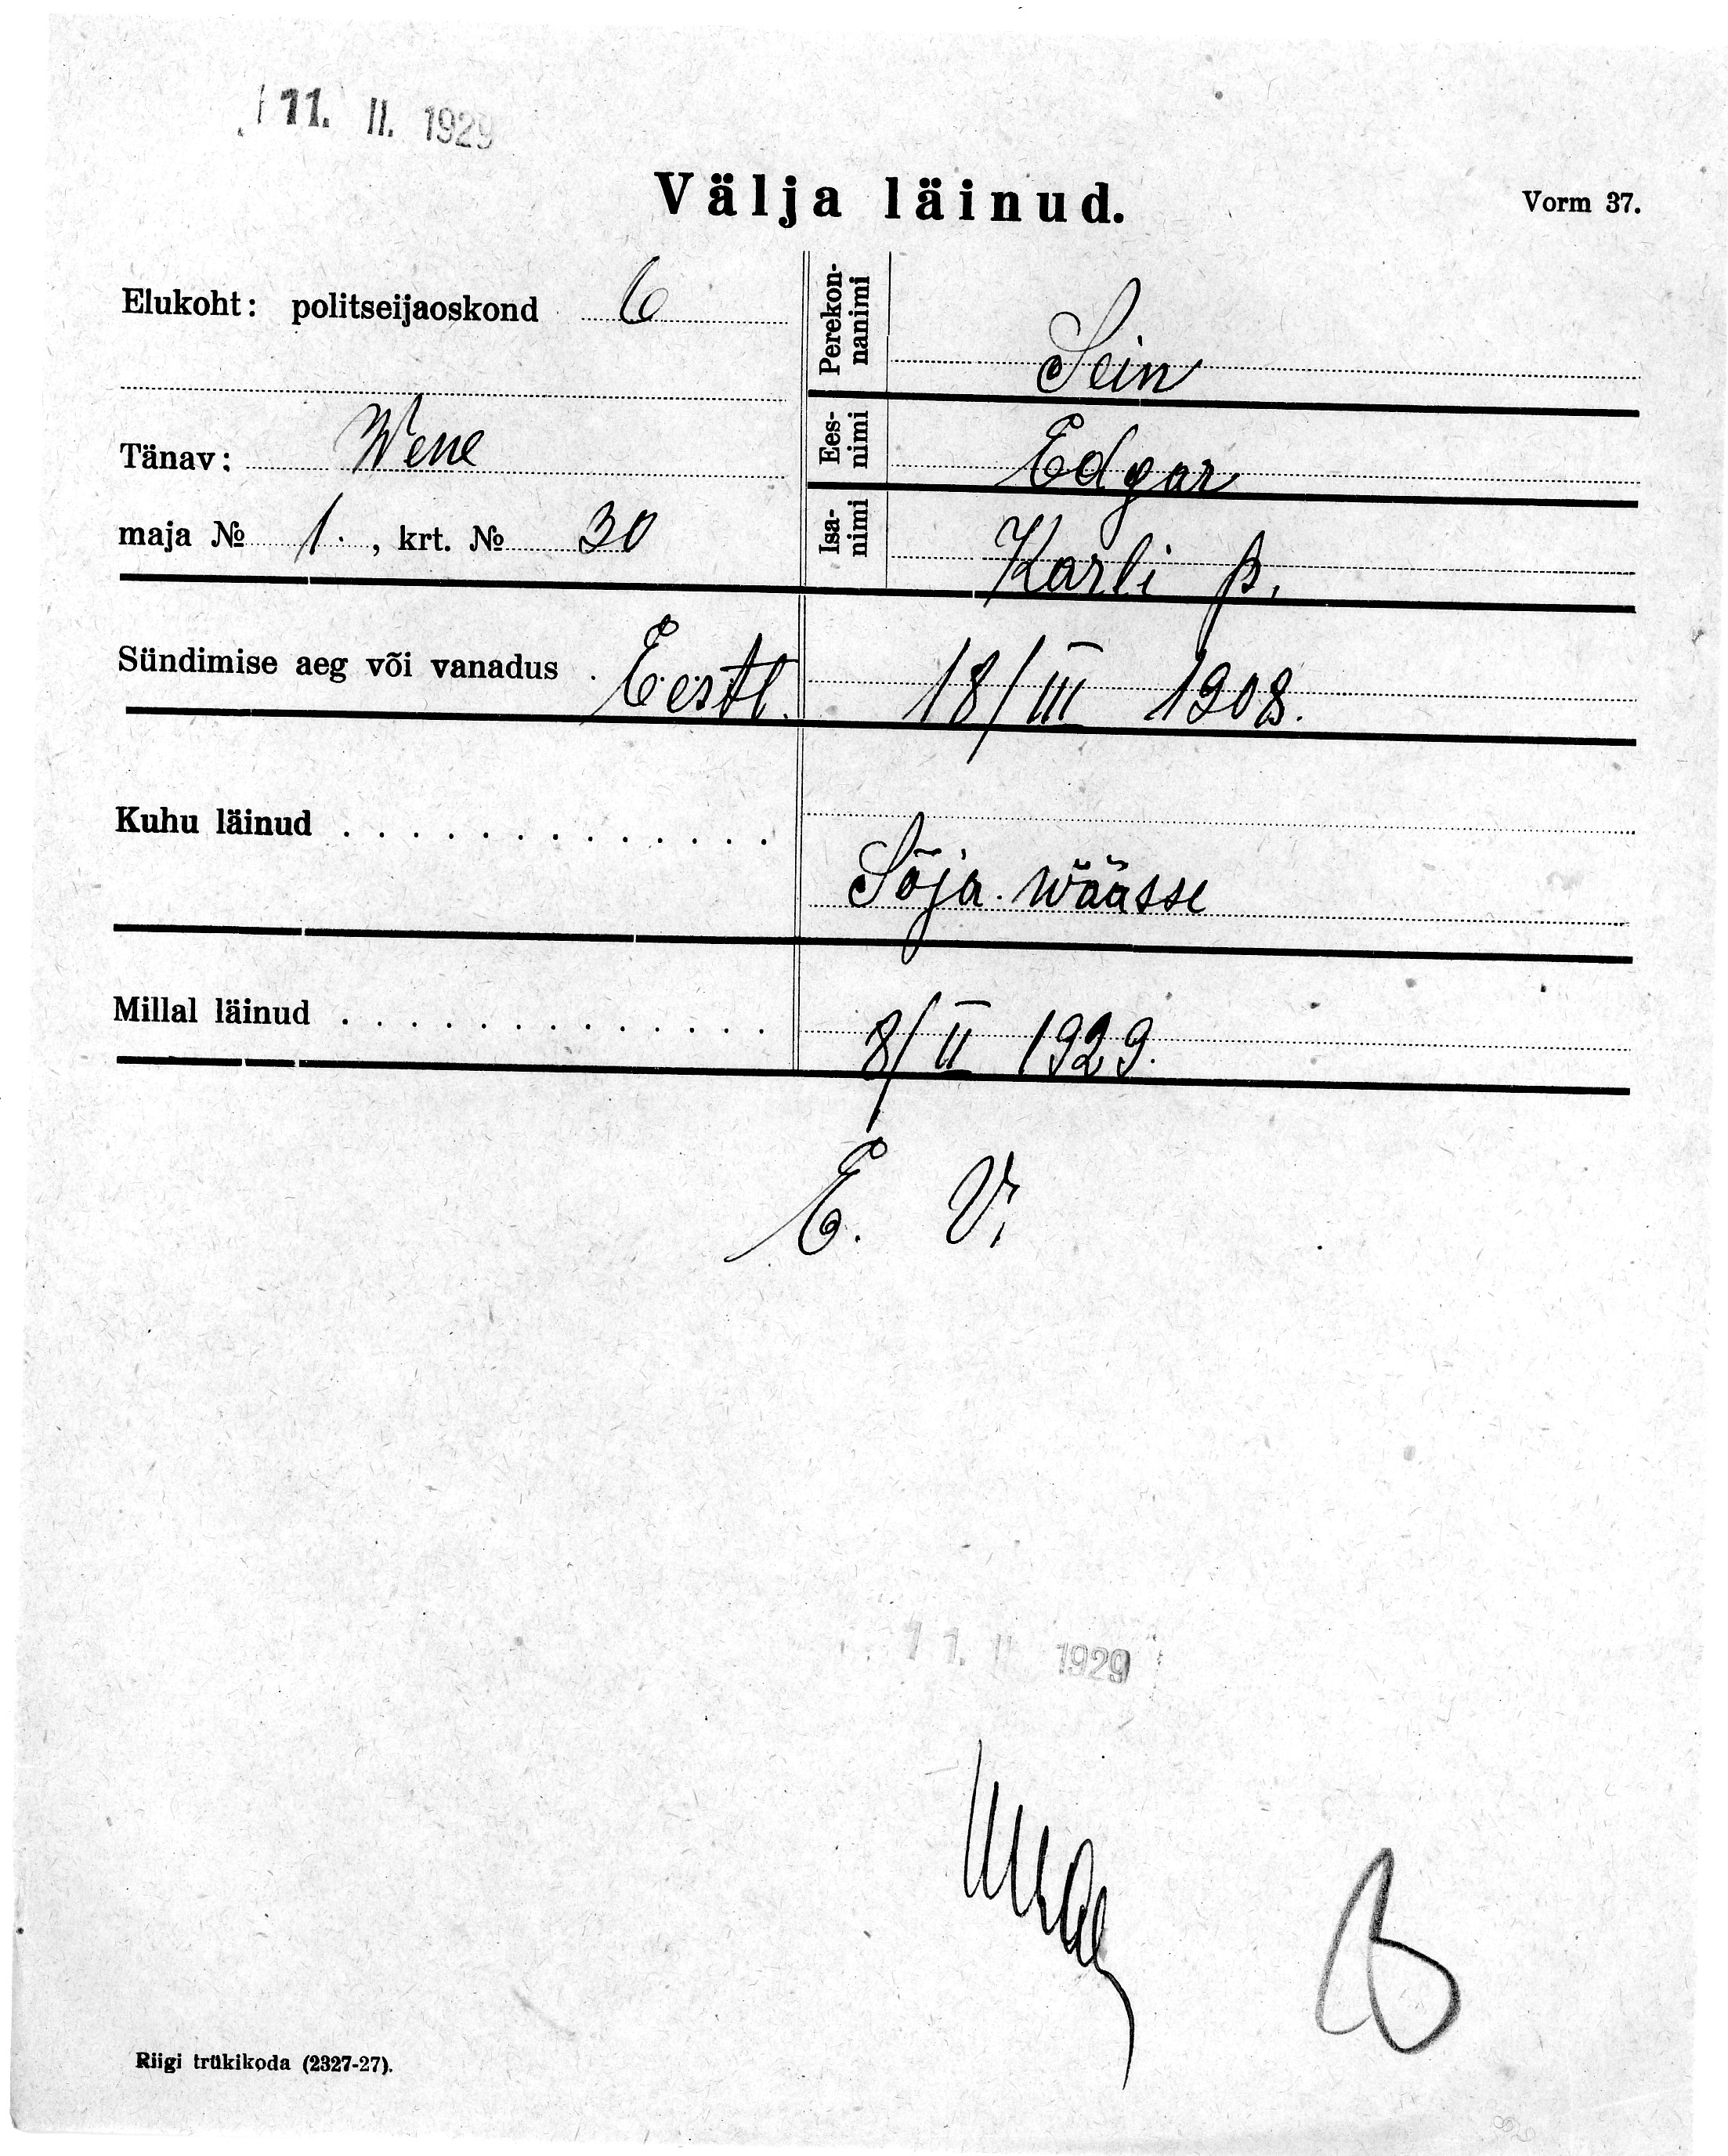 11. II. 1929
Välja läinud.
Vorm 37.
Elukoht: politseijaoskond 6
Tänav: Wene
maja № 1., krt. № 30
Perekon-
nanimi
Sein
Ees-
nimi
Edgar
Isa-
nimi
Karli p.
Sündimise aeg või vanadus Eestl. 18/III 1908.
Kuhu läinud
Sõja wäässe
Millal läinud 8/II 1929.
E. V.
11. II 1929
B
Riigi trükikoda (2327-27).